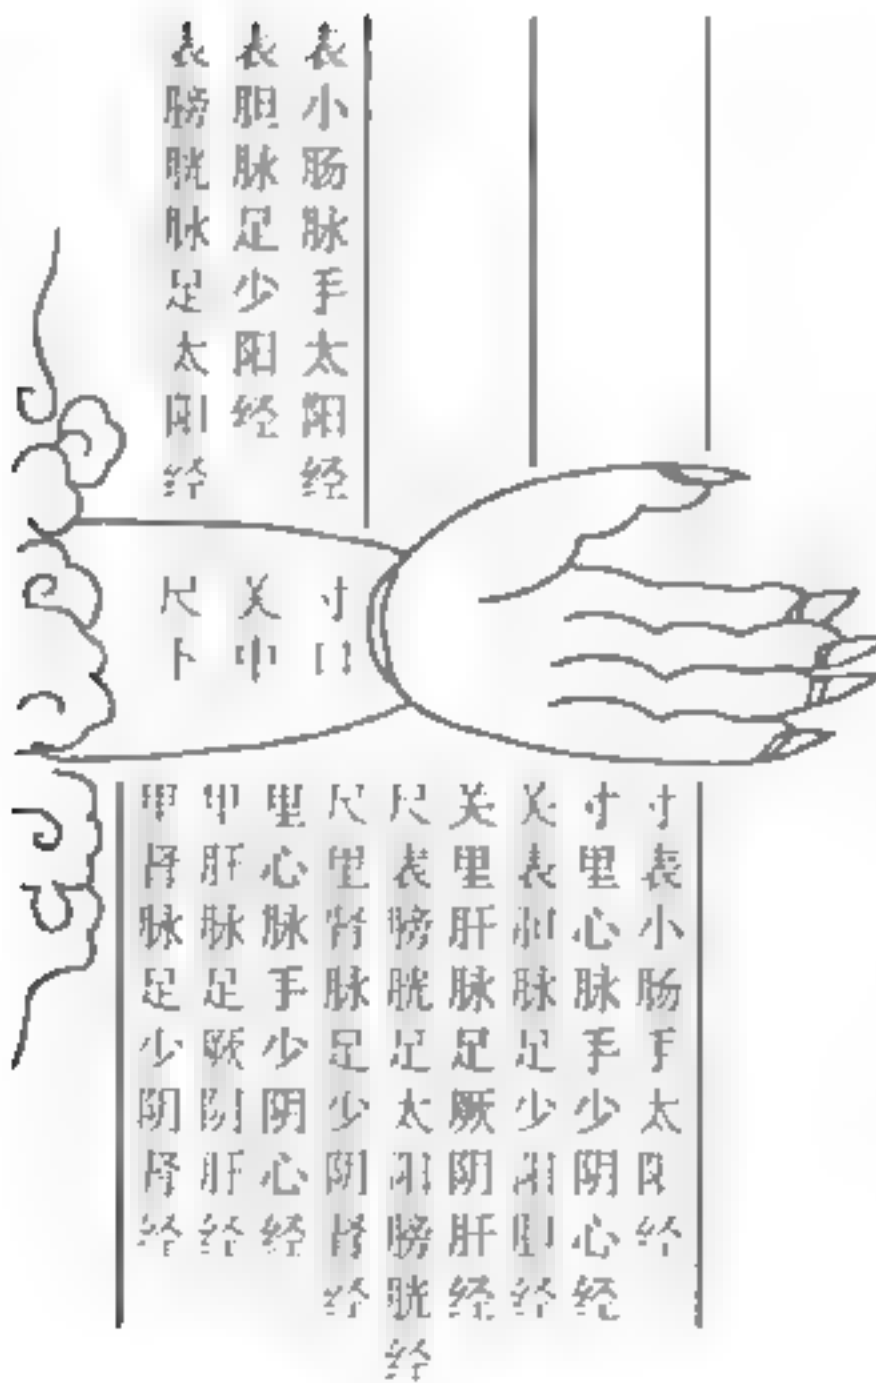 表小肠脉手太阳经
表胆脉足少阳经
表膀胱脉足太阳经
寸口
关中
尺下
寸表小肠手太阳经
寸里心脉手少阴心经
关表胆脉足少阳胆经
关里肝脉足厥阴肝经
尺表膀胱足太阳膀胱经
尺里肾脉足少阴肾经
里心脉手少阴心经
里肝脉足厥阴肝经
里肾脉足少阴肾经